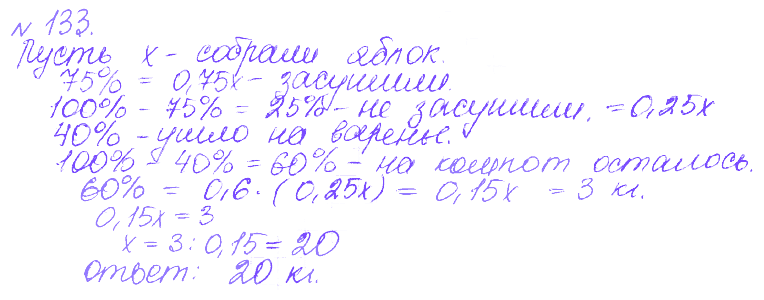 № 133.
Пусть х - собрали яблок.
75% = 0,75х - засушили.
100% - 75% = 25% - не засушили. = 0,25х
40% - ушло на варенье.
100% - 40% = 60% - на компот осталось.
60% = 0,6 · (0,25х) = 0,15х = 3 кг.
0,15х = 3
х = 3 : 0,15 = 20
Ответ: 20 кг.